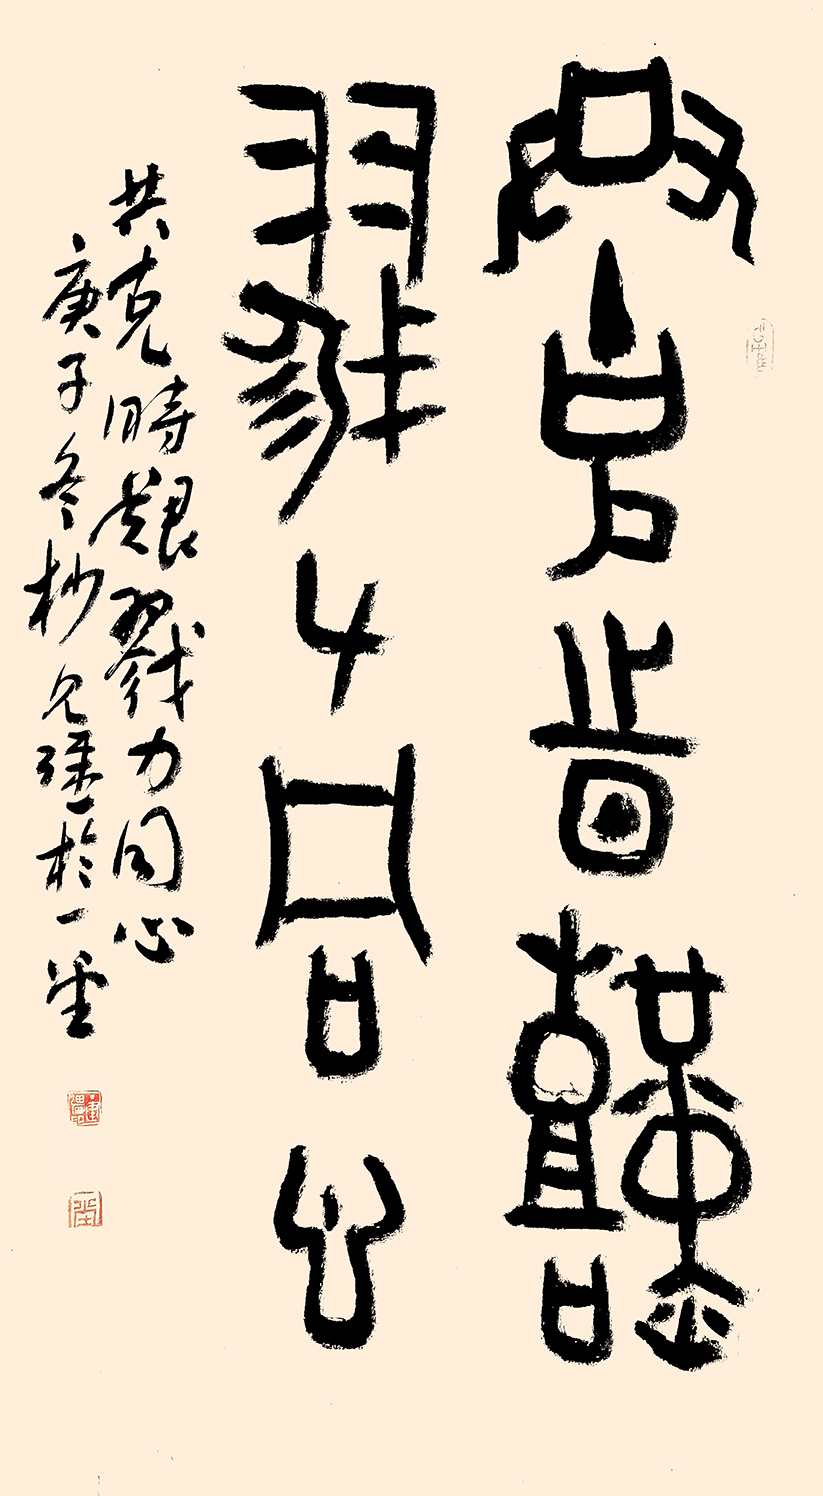 共克時艱
戮力同心
共克時艱戮力同心
庚子冬杪見疆於一堂